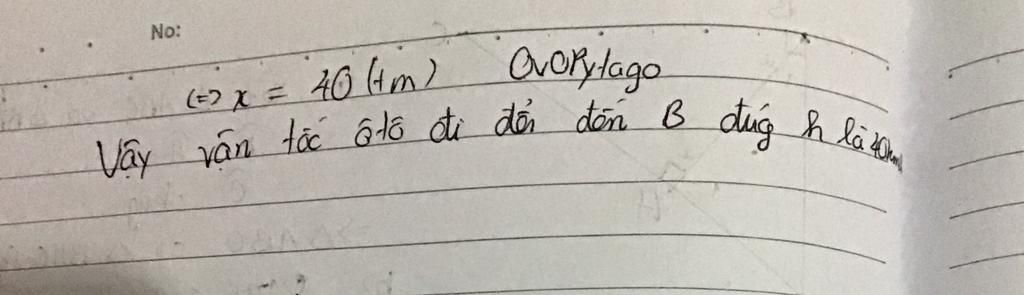 No:
(=) x = 40 (tm) OvORytago
Vậy vận tốc ôtô đi đổi đến B đúg h là 40km